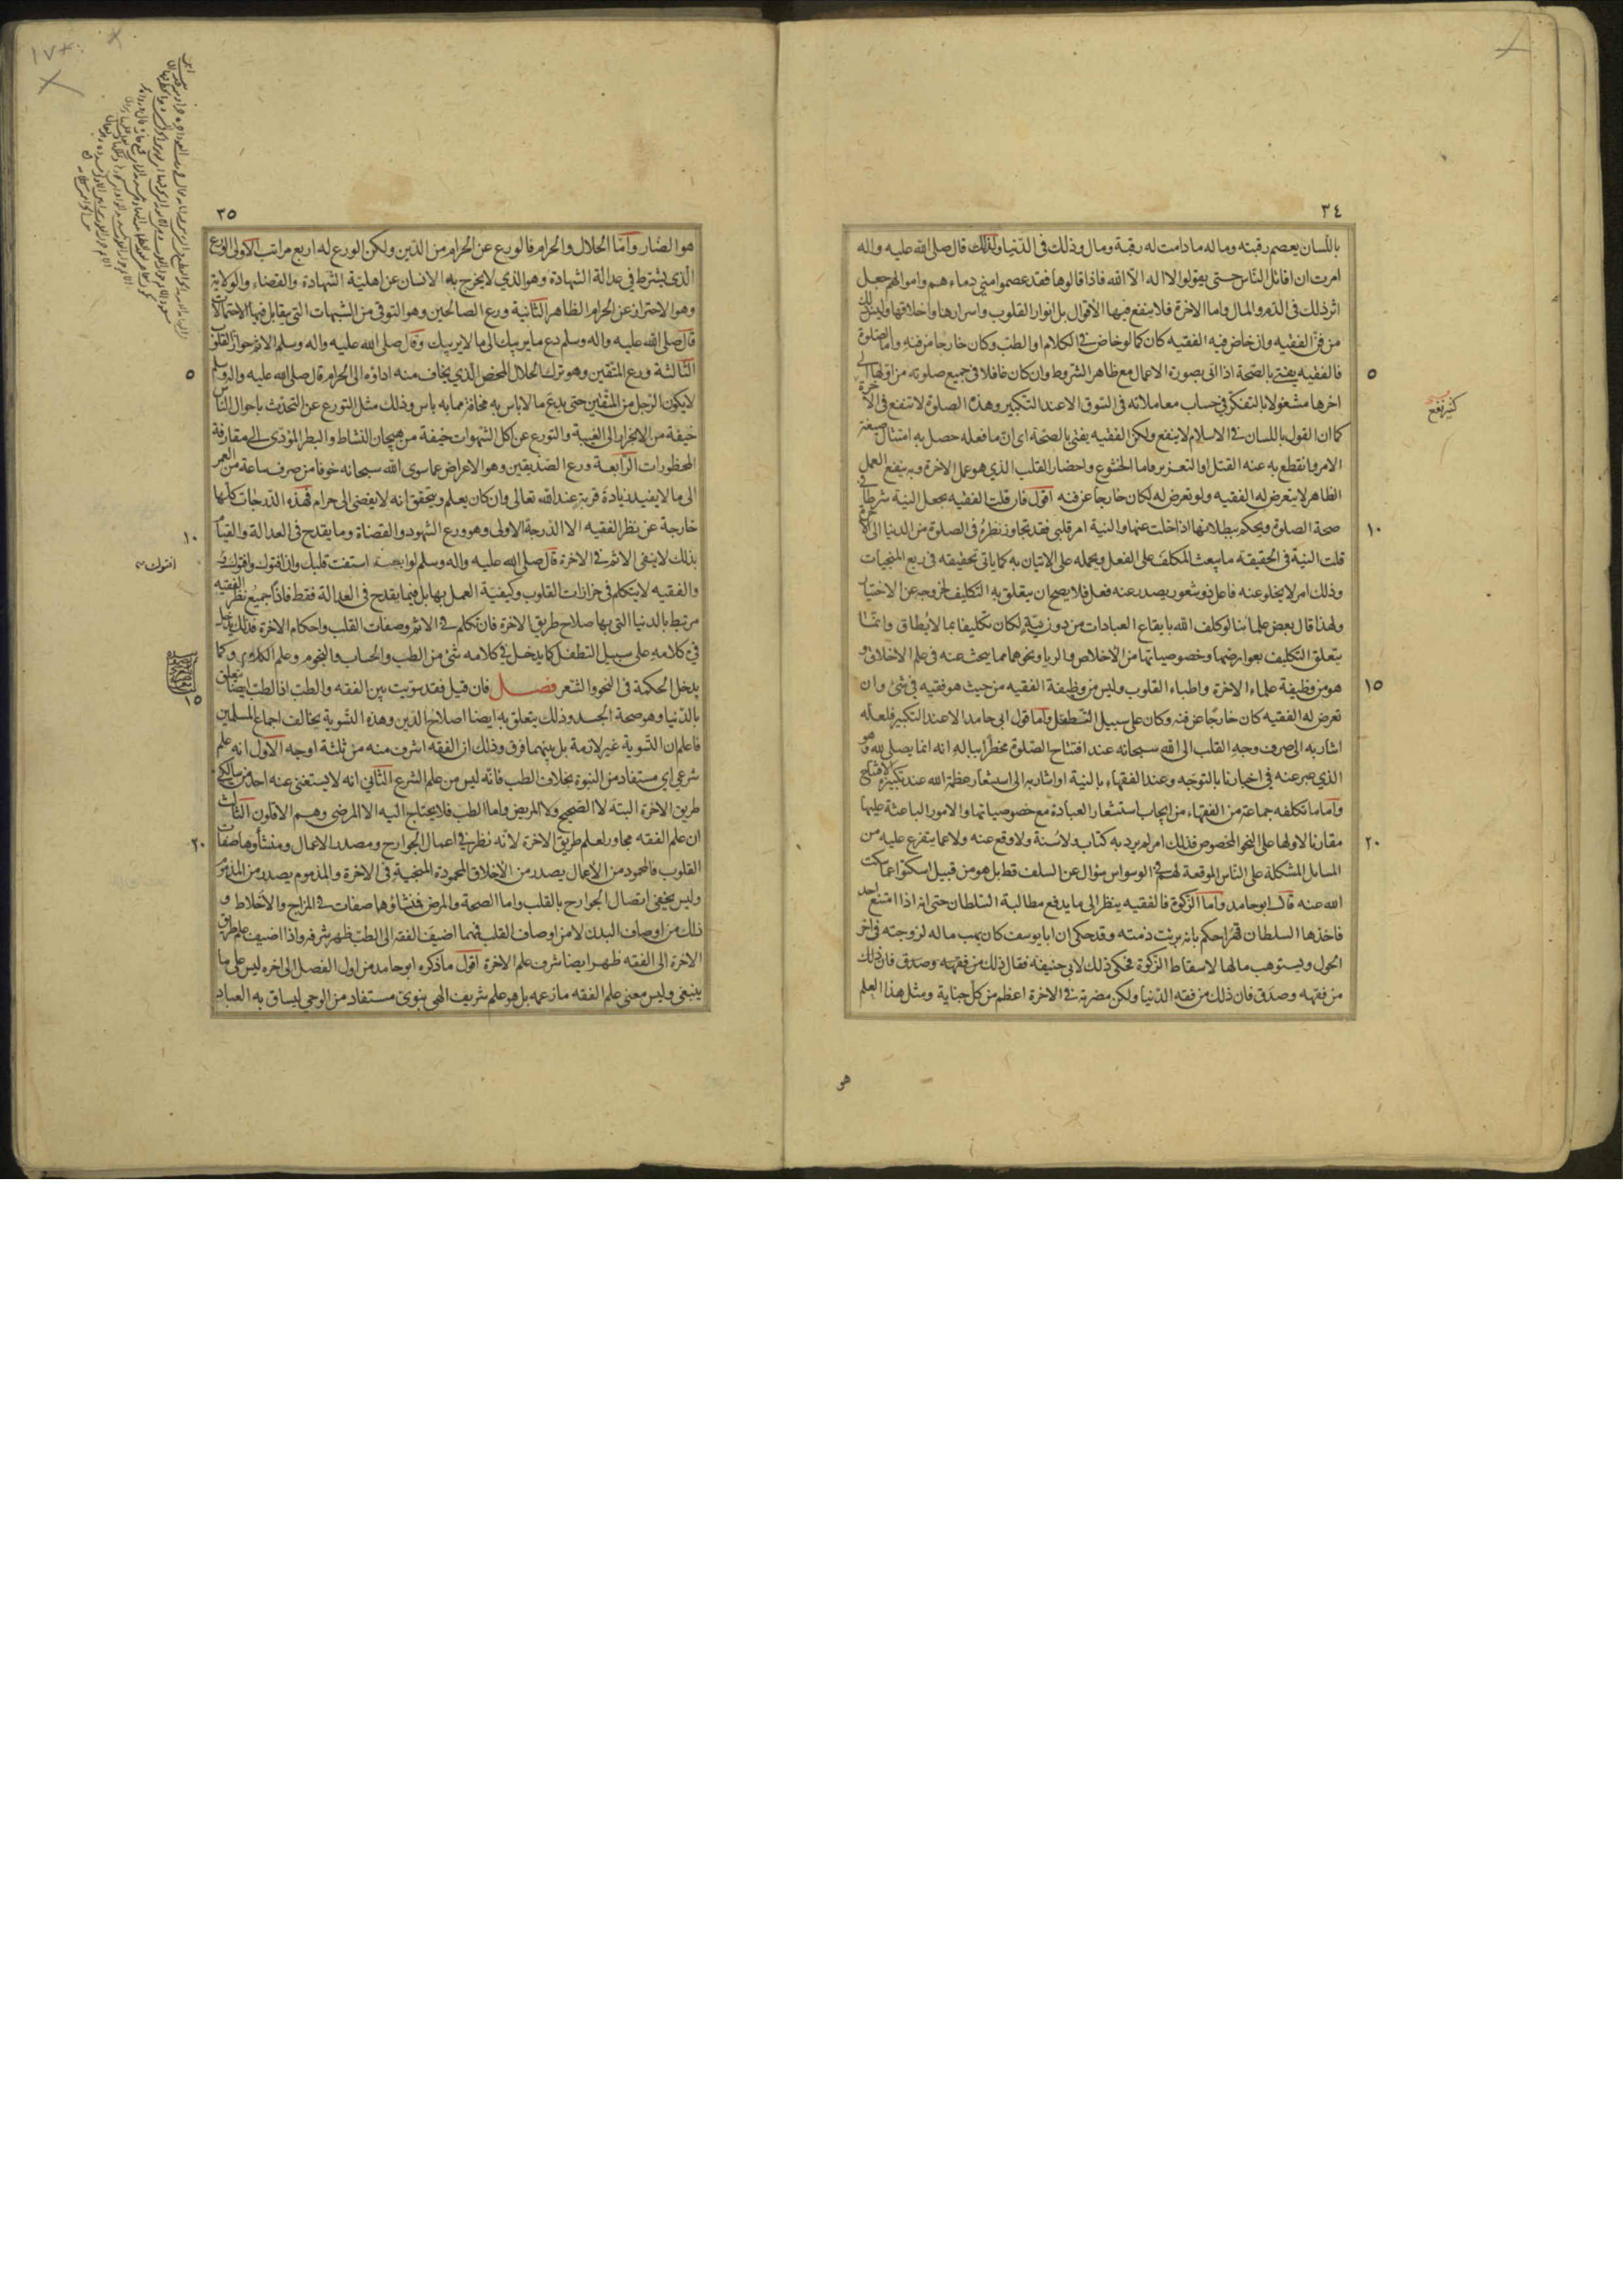 ٣٤
باللسان يعصم رقبته وماله مادامت له رقبة ومال وذلك فى الدنيا ولذلك قال صلى الله عليه واله
امرت ان اقاتل الناس حتى يقولوا لا اله الا الله فاذا قالوها فقد عصموا منى دماءهم واموالهم جعل
اثر ذلك فى الدم والمال واما الاخرة فلا ينفع فيها الأقوال بل انوار القلوب واسرارها واخلاقها وليس ذلك
من فن الفقيه وان خاض فيه الفقيه كان كما لو خاض فى الكلام او الطب وكان خارجا من فنه واما الصلوة
٥
فالفقيه يفتى بالصحة اذا اتى بصورة الاعمال مع ظاهر الشروط وان كان غافلا فى جميع صلوته من اولها الى
اخرها مشغولا بالتفكر فى حساب معاملاته فى السوق الا عند التكبير وهذه الصلوة لا تنفع فى الاخرة
كثير نفع
كما ان القول باللسان فى الاسلام لا ينفع ولكن الفقيه يفتى بالصحة اى ان ما فعله حصل به امتثال صيغة
الامر وانقطع به عنه القتل او التعزير واما الخشوع واحضار القلب الذى هو عمل الاخرة وبه ينفع العمل
الظاهر لا يتعرض له الفقيه ولو تعرض له لكان خارجا عن فنه اقول فان قلت الفقيه يجعل النية شرطا فى
١٠
صحة الصلوة ويحكم ببطلانها اذا خلت عنها والنية امر قلبى فقد تجاوز نظره فى الصلوة من الدنيا الى الاخرة
قلت النية فى الحقيقة ما يبعث المكلف على الفعل ويحمله على الاتيان به كما ياتى تحقيقه فى ربع المنجيات
وذلك امر لا يخلو عنه فاعل ذو شعور يصدر عنه فعل فلا يصح ان يتعلق به التكليف لخروجه عن الاختيار
ولهذا قال بعض علمائنا لو كلف الله بايقاع العبادات من دون نية لكان تكليفا بما لا يطاق وانما
يتعلق التكليف بعوارضها وخصوصياتها من الاخلاص والريا ونحوهما مما يبحث عنه فى علم الاخلاق و
١٥
هو من وظيفة علماء الاخرة واطباء القلوب وليس من وظيفة الفقيه من حيث هو فقيه فى شئ وان
تعرض له الفقيه كان خارجا عن فنه وكان على سبيل التطفل واما قول ابى حامد الا عند التكبير فلعله
اشار به الى صرف وجه القلب الى الله سبحانه عند افتتاح الصلوة مخطرا بباله انه انما يصلى لله وهو
الذى عبر عنه فى اخبارنا بالتوجه وعند الفقهاء بالنية او اشار به الى استشعار عظمة الله عند تكبيرة الافتتاح
واما ما تكلفه جماعة من الفقهاء من ايجاب استشعار العبادة مع خصوصياتها والامور الباعثة عليها
٢٠
مقارنا لاولها على النحو المخصوص فذلك امر لم يرد به كتاب ولا سنة ولا وقع عنه ولا عما يتفرع عليه من
المسائل المشكلة على الناس الموقعة لهم فى الوسواس سؤال عن السلف قط بل هو من قبيل اسكتوا عما سكت
الله عنه قال ابو حامد واما الزكوة فالفقيه ينظر الى ما يدفع مطالبة السلطان حتى انه اذا امتنع احد
فاخذها السلطان قهرا حكم بانه برئت ذمته وقد حكى ان ابا يوسف كان يهب ماله لزوجته فى اخر
الحول ويستوهب مالها لاسقاط الزكوة فحكى ذلك لابى حنيفة فقال ذلك من فقهه وصدق فان ذلك
من فقهه وصدق فان ذلك من فقه الدنيا ولكن مضرته فى الاخرة اعظم من كل جناية ومثل هذا العلم
هو
٣٥
هو الضار واما الحلال والحرام فالورع عن الحرام من الدين ولكن الورع له اربع مراتب الاولى الورع
الذى يشترط فى عدالة الشهادة وهو الذى لا يخرج به الانسان عن اهلية الشهادة والقضاء والولاية
وهو الاحتراز عن الحرام الظاهر الثانية ورع الصالحين وهو التوقى من الشبهات التى يتقابل فيها الاحتمالات
قال صلى الله عليه واله وسلم دع ما يريبك الى ما لا يريبك وقال صلى الله عليه واله وسلم الاثم حواز القلوب
٥
الثالثة ورع المتقين وهو ترك الحلال المحض الذى يخاف منه اداؤه الى الحرام قال صلى الله عليه واله وسلم
لا يكون الرجل من المتقين حتى يدع ما لا باس به مخافة مما به باس وذلك مثل التورع عن التحدث باحوال الناس
خيفة من الانجرار الى الغيبة والتورع عن اكل الشهوات خيفة من هيجان النشاط والبطر المؤدى الى مقارفة
المحظورات الرابعة ورع الصديقين وهو الاعراض عما سوى الله سبحانه خوفا من صرف ساعة من العمر
الى ما لا يفيد زيادة قربة عند الله تعالى وان كان يعلم ويتحقق انه لا يفضى الى حرام فهذه الدرجات كلها
١٠
خارجة عن نظر الفقيه الا الدرجة الاولى وهو ورع الشهود والقضاة وما يقدح فى العدالة والقيام
بذلك لا ينفى الاثم فى الاخرة قال صلى الله عليه واله وسلم لوابصة استفت قلبك وان افتوك وافتوك و
افتوك
والفقيه لا يتكلم فى حزازات القلوب وكيفية العمل بها بل فيما يقدح فى العدالة فقط فاذا جميع نظر الفقيه
مرتبط بالدنيا التى بها صلاح طريق الاخرة فان تكلم فى الاثم وصفات القلب واحكام الاخرة فذلك يدخل
فى كلامه على سبيل التطفل كما يدخل فى كلامه شئ من الطب والحساب والنجوم وعلم الكلام وكما
١٥
يدخل الحكمة فى النحو والشعر فصل فان قيل فقد سويت بين الفقه والطب اذ الطب ايضا يتعلق
بالدنيا وهو صحة الجسد وذلك يتعلق به ايضا اصلاح الدين وهذه التسوية يخالف اجماع المسلمين
فاعلم ان التسوية غير لازمة بل بينهما فرق وذلك ان الفقه اشرف منه من ثلثة اوجه الاول انه علم
شرعى اى مستفاد من النبوة بخلاف الطب فانه ليس من علم الشرع الثانى انه لا يستغنى عنه احد من سالكى
طريق الاخرة البتة لا الصحيح ولا المريض واما الطب فلا يحتاج اليه الا المرضى وهم الاقلون الثالث
٢٠
ان علم الفقه مجاور لعلم طريق الاخرة لانه نظر فى اعمال الجوارح ومصدر الاعمال ومنشأوها صفات
القلوب فالمحمود من الأعمال يصدر من الأخلاق المحمودة المنجية فى الاخرة والمذموم يصدر من المذموم
وليس يخفى اتصال الجوارح بالقلب واما الصحة والمرض فمنشاؤهما صفات فى المزاج والأخلاط و
ذلك من اوصاف البدن لا من اوصاف القلب فمهما اضيف الفقه الى الطب ظهر شرفه واذا اضيف علم طريق
الاخرة الى الفقه ظهر ايضا شرف علم الاخرة اقول ما ذكره ابو حامد من اول الفصل الى اخره ليس على ما
ينبغى وليس معنى علم الفقه ما زعمه بل هو علم شريف الهى نبوى مستفاد من الوحى ليساق به العباد